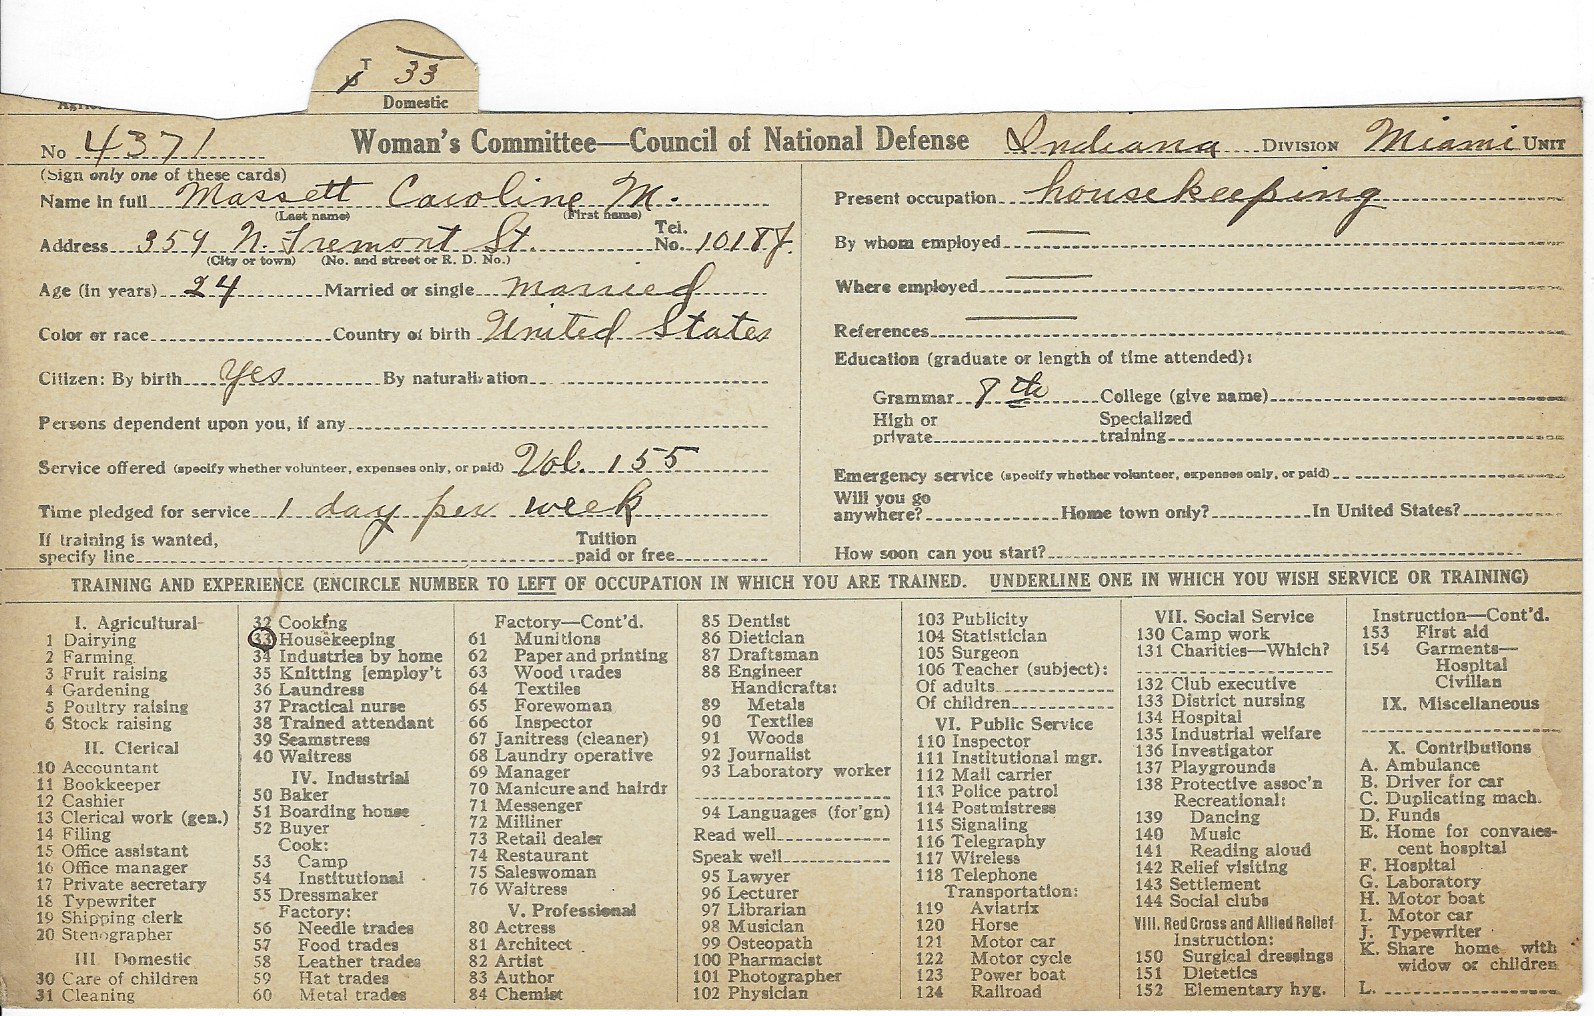 T 33
Domestic
No 4371 Woman's Committee—Council of National Defense Indiana DIVISION Miami UNIT
(Sign only one of these cards)
Name in full Massett Caroline M.
(Last name) (First name)
Address 359 N. Tremont St. Tel. No. 1018J.
(City or town) (No. and street or R. D. No.)
Age (in years) 24 Married or single married
Color or race Country of birth United States
Citizen: By birth Yes By naturalization
Persons dependent upon you, if any
Service offered (specify whether volunteer, expenses only, or paid) Vol. 155
Time pledged for service 1 day per week
If training is wanted, specify line Tuition paid or free
Present occupation housekeeping
By whom employed
Where employed
References
Education (graduate or length of time attended):
Grammar 8th College (give name)
High or private Specialized training
Emergency service (specify whether volunteer, expenses only, or paid)
Will you go anywhere? Home town only? In United States?
How soon can you start?
TRAINING AND EXPERIENCE (ENCIRCLE NUMBER TO LEFT OF OCCUPATION IN WHICH YOU ARE TRAINED. UNDERLINE ONE IN WHICH YOU WISH SERVICE OR TRAINING)
I. Agricultural
1 Dairying
2 Farming
3 Fruit raising
4 Gardening
5 Poultry raising
6 Stock raising
II. Clerical
10 Accountant
11 Bookkeeper
12 Cashier
13 Clerical work (gen.)
14 Filing
15 Office assistant
16 Office manager
17 Private secretary
18 Typewriter
19 Shipping clerk
20 Stenographer
III. Domestic
30 Care of children
31 Cleaning
32 Cooking
33 Housekeeping
34 Industries by home
35 Knitting [employ't
36 Laundress
37 Practical nurse
38 Trained attendant
39 Seamstress
40 Waitress
IV. Industrial
50 Baker
51 Boarding house
52 Buyer
Cook:
53 Camp
54 Institutional
55 Dressmaker
Factory:
56 Needle trades
57 Food trades
58 Leather trades
59 Hat trades
60 Metal trades
Factory—Cont'd.
61 Munitions
62 Paper and printing
63 Wood trades
64 Textiles
65 Forewoman
66 Inspector
67 Janitress (cleaner)
68 Laundry operative
69 Manager
70 Manicure and hairdr
71 Messenger
72 Milliner
73 Retail dealer
74 Restaurant
75 Saleswoman
76 Waitress
V. Professional
80 Actress
81 Architect
82 Artist
83 Author
84 Chemist
85 Dentist
86 Dietician
87 Draftsman
88 Engineer
Handicrafts:
89 Metals
90 Textiles
91 Woods
92 Journalist
93 Laboratory worker
94 Languages (for'gn)
Read well
Speak well
95 Lawyer
96 Lecturer
97 Librarian
98 Musician
99 Osteopath
100 Pharmacist
101 Photographer
102 Physician
103 Publicity
104 Statistician
105 Surgeon
106 Teacher (subject):
Of adults
Of children
VI. Public Service
110 Inspector
111 Institutional mgr.
112 Mail carrier
113 Police patrol
114 Postmistress
115 Signaling
116 Telegraphy
117 Wireless
118 Telephone
Transportation:
119 Aviatrix
120 Horse
121 Motor car
122 Motor cycle
123 Power boat
124 Railroad
VII. Social Service
130 Camp work
131 Charities—Which?
132 Club executive
133 District nursing
134 Hospital
135 Industrial welfare
136 Investigator
137 Playgrounds
138 Protective assoc'n
Recreational:
139 Dancing
140 Music
141 Reading aloud
142 Relief visiting
143 Settlement
144 Social clubs
VIII. Red Cross and Allied Relief
Instruction:
150 Surgical dressings
151 Dietetics
152 Elementary hyg.
Instruction—Cont'd.
153 First aid
154 Garments—
Hospital
Civilian
IX. Miscellaneous
X. Contributions
A. Ambulance
B. Driver for car
C. Duplicating mach.
D. Funds
E. Home for convales-
cent hospital
F. Hospital
G. Laboratory
H. Motor boat
I. Motor car
J. Typewriter
K. Share home with
widow or children
L.